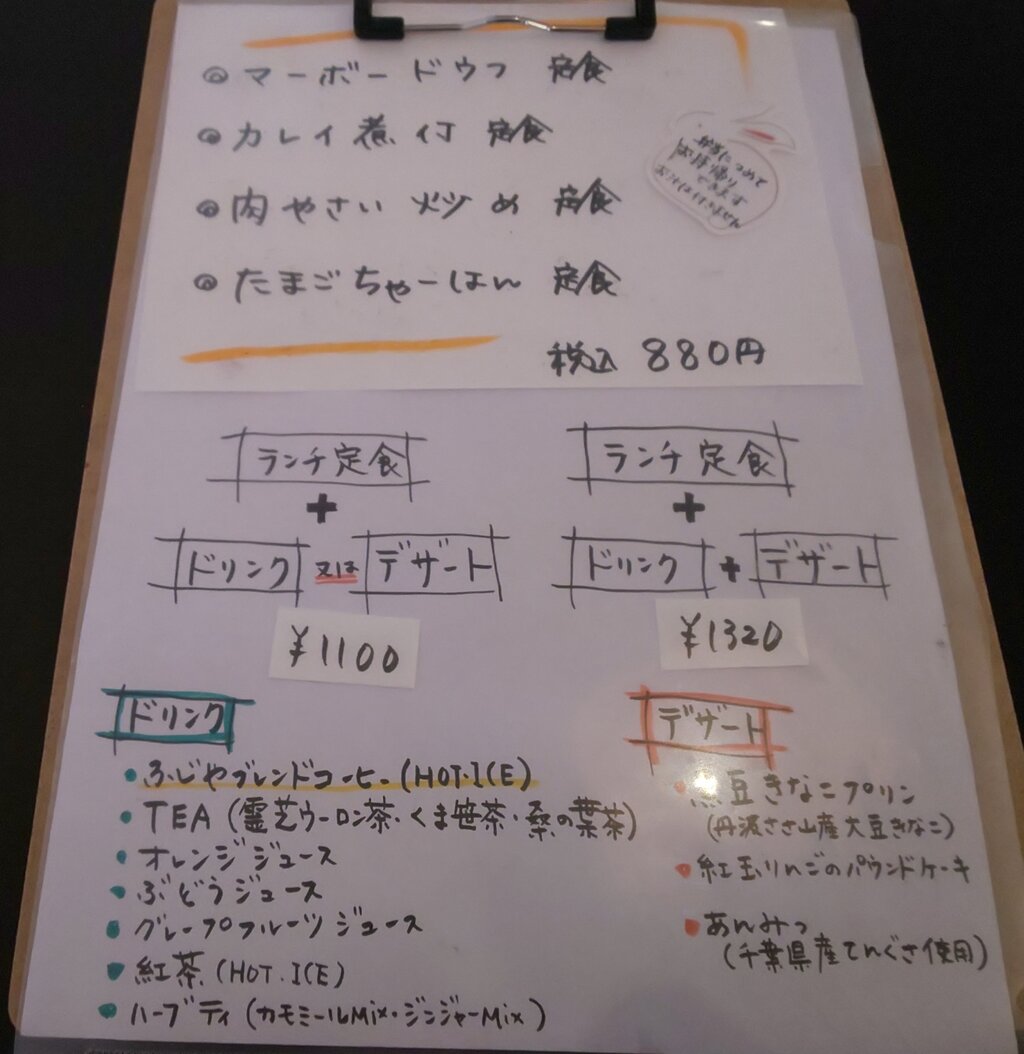 ◎マーボードウフ 定食
◎カレイ煮付 定食
◎肉やさい炒め 定食
◎たまごちゃーはん 定食
弁当につめて
お持帰り
できます
お汁は付きません
税込 880円
ランチ定食
+
ドリンク 又は デザート
¥1100
ランチ定食
+
ドリンク + デザート
¥1320
ドリンク
・ふじやブレンドコーヒー(HOT・ICE)
・TEA(霊芝ウーロン茶・くま笹茶・桑の葉茶)
・オレンジジュース
・ぶどうジュース
・グレープフルーツジュース
・紅茶(HOT.ICE)
・ハーブティ(カモミールMix・ジンジャーMix)
デザート
・黒豆きなこプリン
(丹波ささ山産大豆きなこ)
・紅玉りんごのパウンドケーキ
・あんみつ
(千葉県産てんぐさ使用)